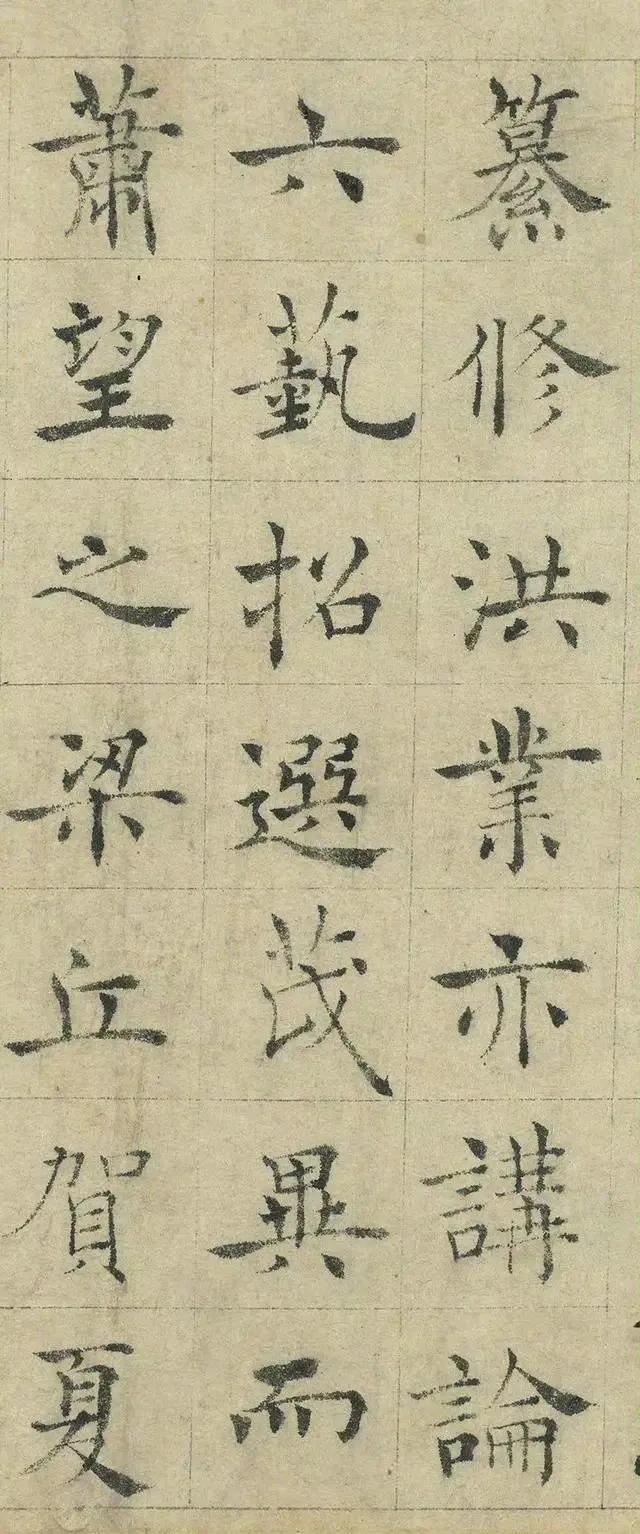 纂修洪業亦講論
六藝招選茂異而
蕭望之梁丘賀夏